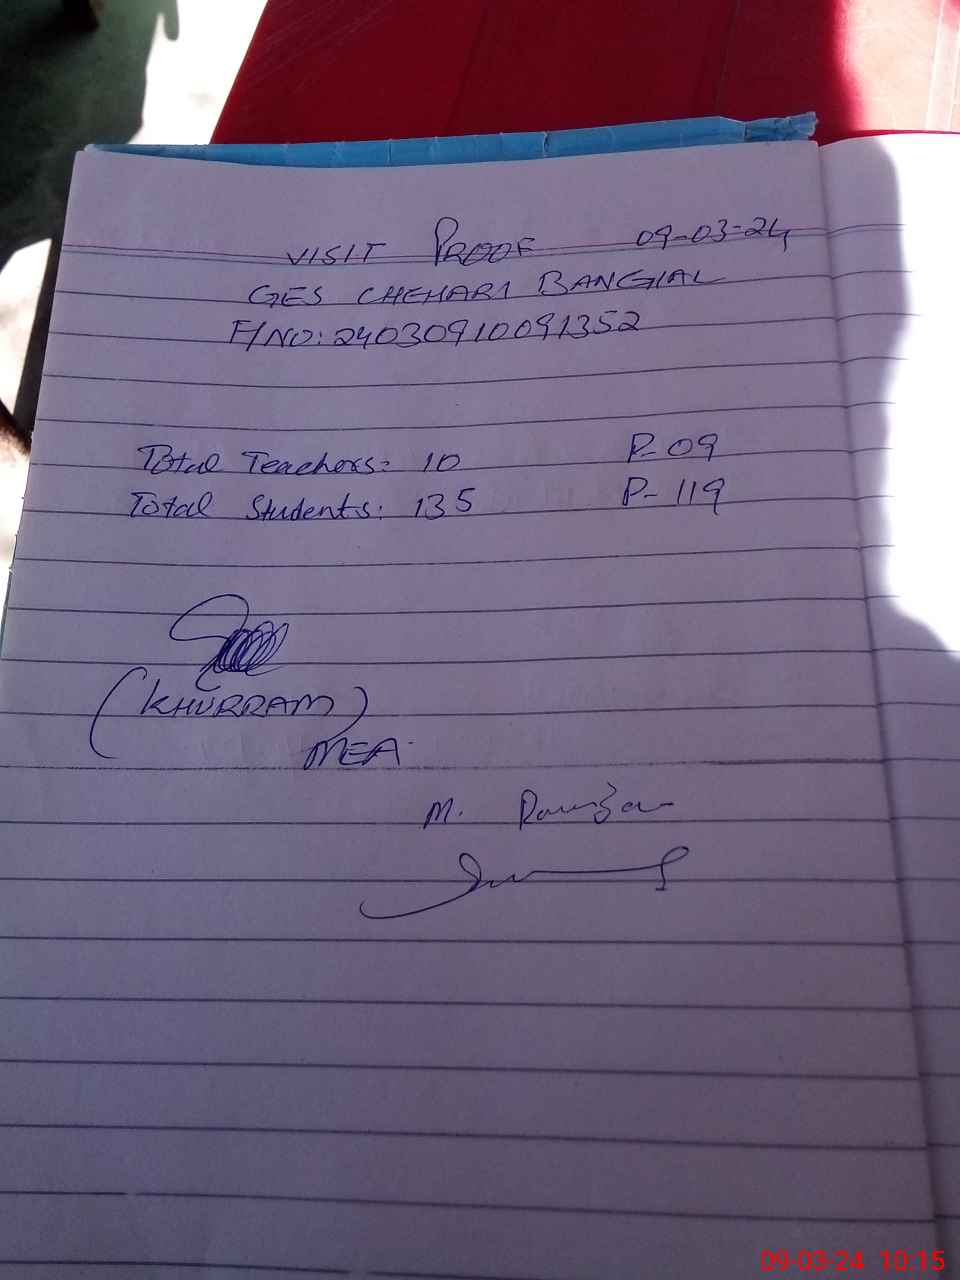 VISIT PROOF 09-03-24
GES CHEHARI BANGIAL
F/NO: 24030910091352
Total Teachers: 10 P-09
Total Students: 135 P-119
(KHURRAM)
MEA.
M. Ramzan
09-03-24 10:15